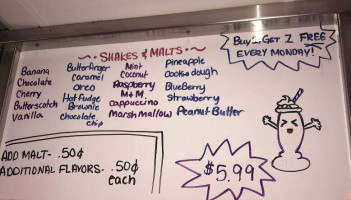 Buy 2, Get 1 FREE
EVERY MONDAY!
SHAKES & MALTS
Banana
Chocolate
Cherry
Butterscotch
Vanilla
Butterfinger
Caramel
Oreo
Hot Fudge
Brownie
Chocolate
Chip
Mint
Coconut
Raspberry
M&M
Cappuccino
Marshmallow
Pineapple
Cookie dough
BlueBerry
Strawberry
Peanut Butter
ADD MALT- .50¢
ADDITIONAL FLAVORS- .50¢
each
$5.99